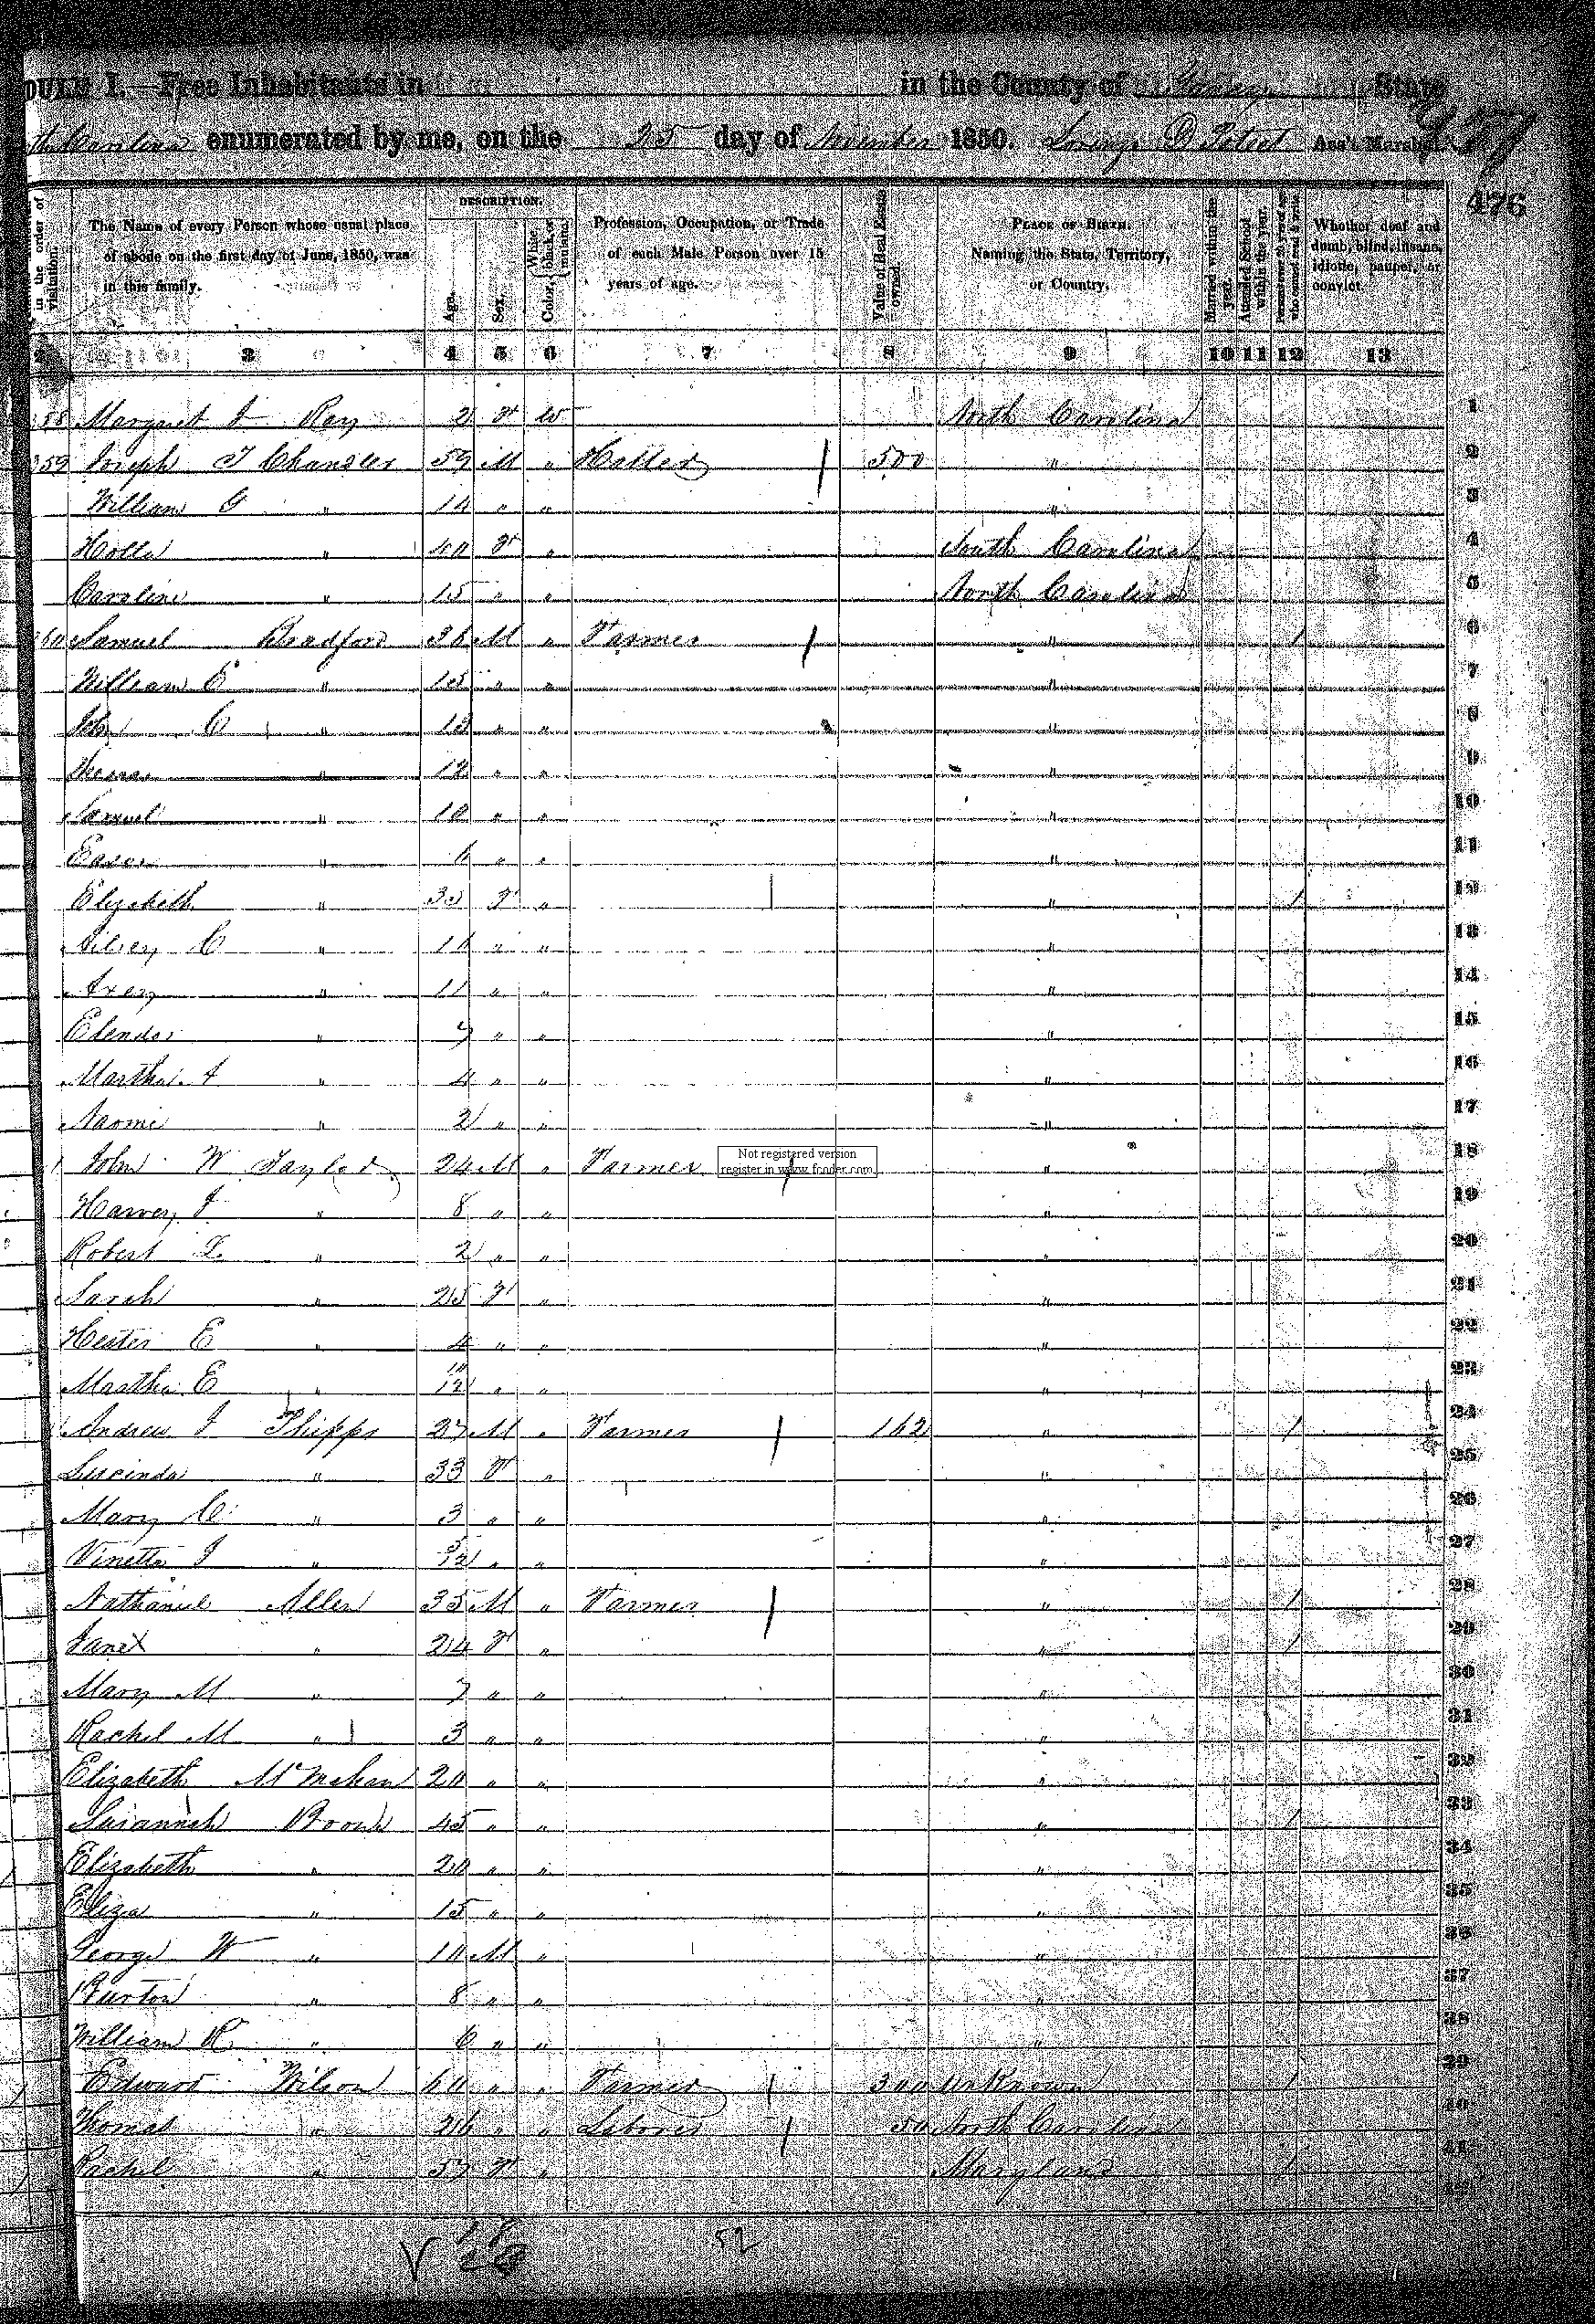 DULE I.—Free Inhabitants in in the County of Yancey State
th Carolina enumerated by me, on the 25 day of November 1850. Ass't Marshal.
476
in the order of visitation.
The Name of every Person whose usual place of abode on the first day of June, 1850, was in this family.
DESCRIPTION.
Age.
Sex.
Color, White, black, or mulatto.
Profession, Occupation, or Trade of each Male Person over 15 years of age.
Value of Real Estate owned.
PLACE OF BIRTH. Naming the State, Territory, or Country.
Married within the year.
Attended School within the year.
Persons over 20 years of age who cannot read & write.
Whether deaf and dumb, blind, insane, idiotic, pauper, or convict.
3 4 5 6 7 8 9 10 11 12 13
58 Margaret J Ray 2 F W North Carolina 1
59 Joseph J Chandler 59 M " Hatter 500 " 2
William G " 14 " " " 3
" 40 F " South Carolina 4
Caroline " 15 " " North Carolina 5
60 Samuel Bradford 36 M " Farmer " / 6
William E " 15 " " " 7
John C " 13 " " " 8
" 12 " " " 9
Samuel " 10 " " " 10
" 6 " " " 11
Elizabeth " 35 F " " / 12
C " " " " 13
" 11 " " " 14
" 7 " " " 15
Martha A " 4 " " " 16
Naomi " 2 " " " 17
John W Taylor 24 M " Farmer " 18
Not registered version
register in www.fcoder.com
Harvey J " 8 " " " 19
Robert L " 2 " " " 20
Sarah " 25 F " " 21
Hester E " 4 " " " 22
Martha E " 10/12 " " " 23
Andrew J Phipps 27 M " Farmer 162 " / 24
Lucinda " 33 F " " 25
Mary C " 3 " " " 26
Vinetta J " /12 " " " 27
Nathaniel Allen 35 M " Farmer " / 28
Jane " 24 F " " / 29
Mary M " 7 " " " 30
Rachel M " 3 " " " 31
Elizabeth McMahan 20 " " " 32
Susannah 45 " " " / 33
Elizabeth " 20 " " " 34
Eliza " 15 " " " 35
George W " 10 M " " 36
Burton " 8 " " " 37
William R " 6 " " " 38
Edward Wilson 60 " " Farmer 300 Unknown / 39
Thomas " 26 " " Laborer 50 North Carolina 40
Rachel " 57 F " Maryland / 41
42
52